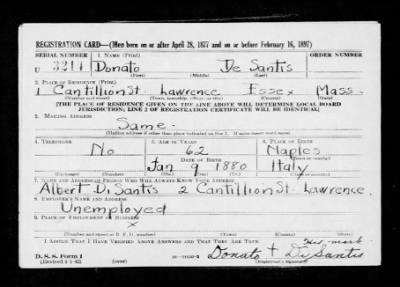 REGISTRATION CARD—(Men born on or after April 28, 1877 and on or before February 16, 1897)
SERIAL NUMBER 1. NAME (Print) ORDER NUMBER
U 3211 Donato De Santis
(First) (Middle) (Last)
2. PLACE OF RESIDENCE (Print)
1 Cantillion St Lawrence Essex Mass.
(Number and street) (Town, township, village, or city) (County) (State)
[THE PLACE OF RESIDENCE GIVEN ON THE LINE ABOVE WILL DETERMINE LOCAL BOARD
JURISDICTION; LINE 2 OF REGISTRATION CERTIFICATE WILL BE IDENTICAL]
3. MAILING ADDRESS
Same.
[Mailing address if other than place indicated on line 2. If same insert word same]
4. TELEPHONE 5. AGE IN YEARS 6. PLACE OF BIRTH
No 62 Naples
DATE OF BIRTH (Town or county)
Jan 9 1880 Italy
7. NAME AND ADDRESS OF PERSON WHO WILL ALWAYS KNOW YOUR ADDRESS
Albert Di Santis 2 Cantillion St Lawrence.
8. EMPLOYER'S NAME AND ADDRESS
Unemployed
9. PLACE OF EMPLOYMENT OR BUSINESS
x
I AFFIRM THAT I HAVE VERIFIED ABOVE ANSWERS AND THAT THEY ARE TRUE.
his mark
D. S. S. Form 1 Donato + Di Santis
(Revised 4-1-42) (over) (Registrant's signature)